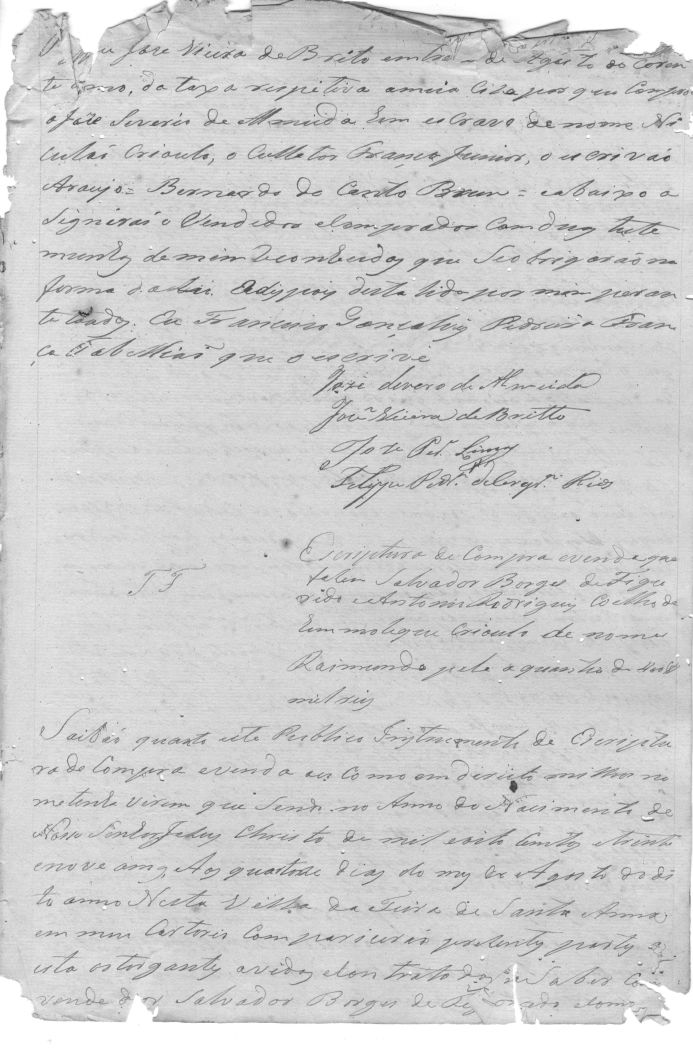 Jose Vieira de Brito em tres de Agosto do Coren
te anno, da taxa respetiva a meia Ciza por que Comprou
a Joze Severio de Almeida Hum escravo de nome Ni
culaó Crioulo, o Colletor França Junior, o escrivaõ
Araujo = Bernardo do Canto Brum = eabaixo a
signaraó o Vendedor e Comprador Com duas teste
munhas de mim reconhecidas que se obrigaraõ na
forma da Lei. E depois desta lida por mim peran
te todos. Eu Francisco Gonçalves Pedreira Fran
ça Tabelliaõ que o escrivi
Joze Severo de Almeida
Joze Vieira de Britto
Joze Per.ª
Felippe Pedr.º de Cerq.ª Rios
TT
Escriptura de Compra evenda que
fazem Salvador Borges de Figue
rido e Antonio Rodrigues Coelho de
Hum moleque Crioulo de nome
Raimundo pela a quantia de
mil reis
Saibaó quanto este Publico Instrumento de Escriptu
ra de Compra evenda ou Como em direito milhor no
me tenha virem que Sendo no Anno do Nacimento de
Nosso Senhor Jesus Christo de mil e oito Centos e trinta
enove annos Aos quatorze dias do mes de Agosto do di
to anno Nesta Villa da Feira de Santa Anna
em meu Cartorio Compareceraó presentes partes a
esta outorgantes avidos e Contratados a Saber Co
vendedor Salvador Borges de